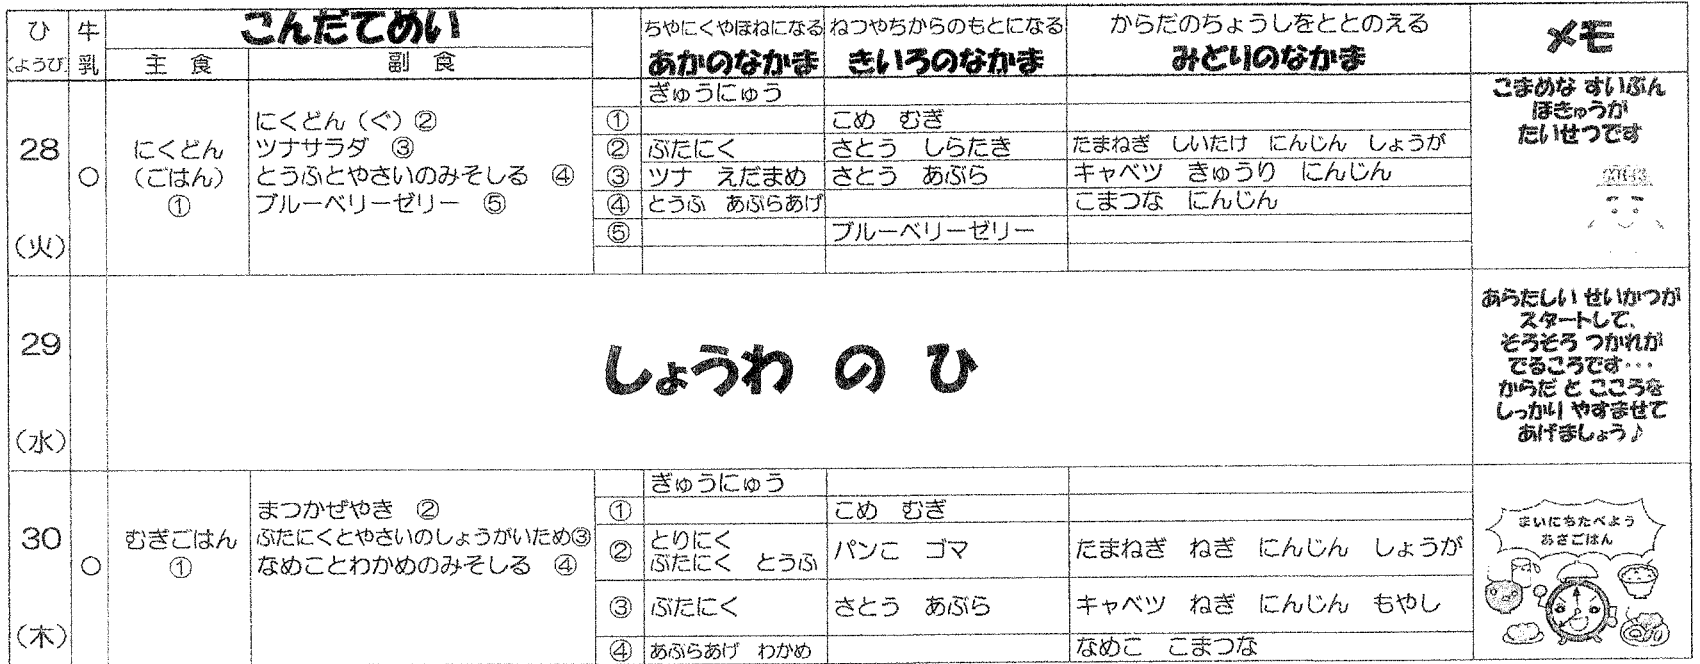 ひ
(ようび)
牛
乳
こんだてめい
主 食
副 食
ちやにくやほねになる
あかのなかま
ねつやちからのもとになる
きいろのなかま
からだのちょうしをととのえる
みどりのなかま
メモ
28
(火)
○
にくどん
(ごはん)
①
にくどん(ぐ)②
ツナサラダ ③
とうふとやさいのみそしる ④
ブルーベリーゼリー ⑤
ぎゅうにゅう
① こめ むぎ
② ぶたにく さとう しらたき たまねぎ しいたけ にんじん しょうが
③ ツナ えだまめ さとう あぶら キャベツ きゅうり にんじん
④ とうふ あぶらあげ こまつな にんじん
⑤ ブルーベリーゼリー
こまめな すいぶん
ほきゅうが
たいせつです
29
(水)
しょうわ の ひ
あらたしい せいかつが
スタートして、
そろそろ つかれが
でるころです・・・
からだ と こころを
しっかり やすませて
あげましょう♪
30
(木)
○
むぎごはん
①
まつかぜやき ②
ぶたにくとやさいのしょうがいため③
なめことわかめのみそしる ④
ぎゅうにゅう
① こめ むぎ
② とりにく
ぶたにく とうふ
パンこ ゴマ
たまねぎ ねぎ にんじん しょうが
③ ぶたにく さとう あぶら キャベツ ねぎ にんじん もやし
④ あぶらあげ わかめ なめこ こまつな
まいにちたべよう
あさごはん